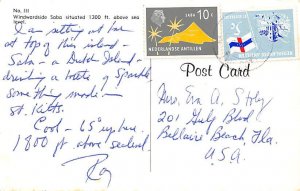 No. 111
Windwardside Saba situated 1300 ft. above sea
level
I am sitting at bar
at top of this island -
Saba - a Dutch Island -
drinking a bottle of
something made in
St. Kitts.
Cool - 65° up here,
1800 ft above sealevel
Ray
10c
NEDERLANDSE
ANTILLEN
Post Card
Mrs. Eva A.
201 Gulf Blvd
Bellaire Beach, Fla.
U.S.A.